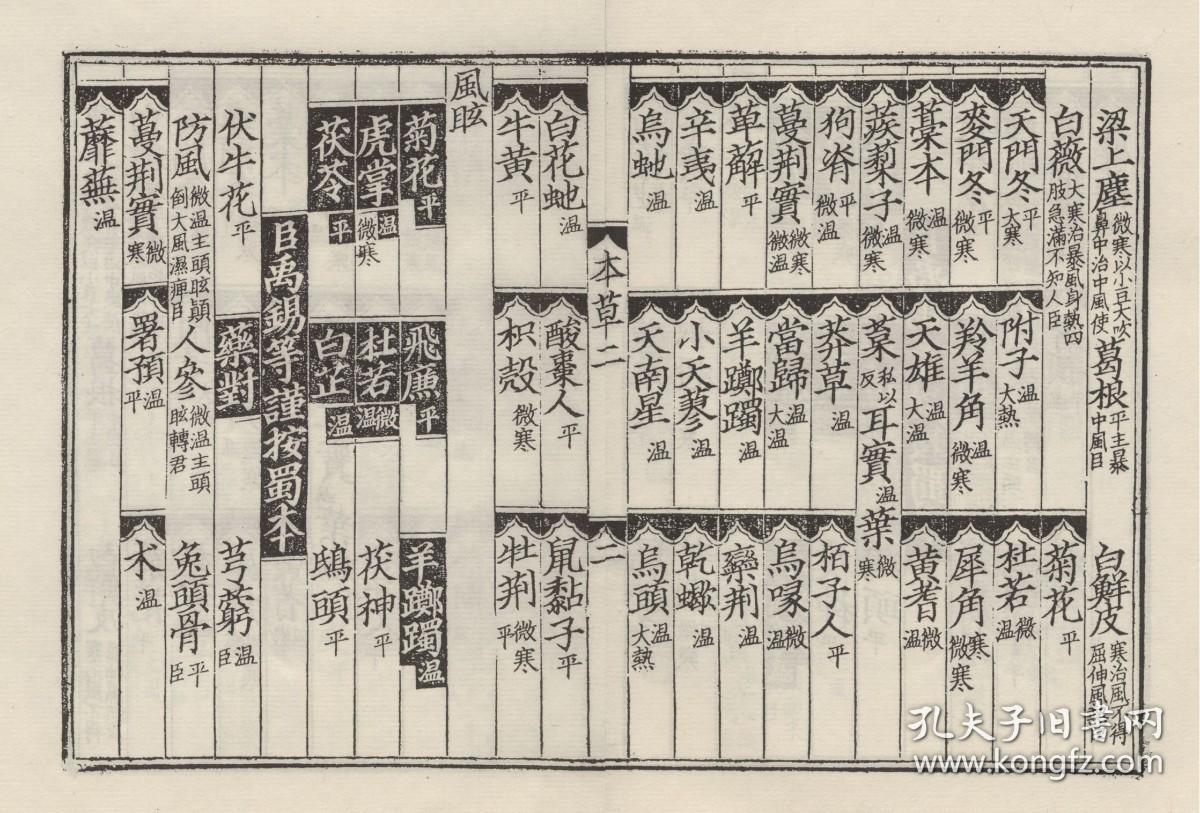 梁上塵微寒以小豆大吹鼻中治中風使 葛根平主暴中風臣 白鮮皮寒治風不得屈伸風
白薇大寒治暴風身熱四肢急滿不知人臣 菊花平
天門冬平大寒 附子溫大熱 杜若微溫
麥門冬平微寒 羚羊角溫微寒 犀角寒微寒
藁本溫微寒 天雄溫大溫 黃耆微溫
蒺蔾子溫微寒 葈私以反耳實溫葉微寒
狗脊平微溫 莽草溫 栢子人平
蔓荆實微寒微溫 當歸溫大溫 烏喙微溫
萆薢平 羊躑躅溫 欒荆溫
辛夷溫 小天蓼溫 乾蠍溫
烏虵溫 天南星溫 烏頭溫大熱
本草二 二
白花虵溫 酸棗人平 鼠黏子平
牛黃平 枳殼微寒 牡荆微寒平
風眩
菊花平 飛廉平 羊躑躅溫
虎掌溫微寒 杜若微溫 茯神平
茯苓平 白芷溫 鴟頭平
臣禹錫等謹按蜀本
伏牛花平 藥對 芎藭溫臣
防風微溫主頭眩顛倒大風濕痺臣 人參微溫主頭眩轉君 兔頭骨平臣
蔓荆實微寒 署預溫平 术溫
蘼蕪溫
孔夫子旧书网
www.kongfz.com